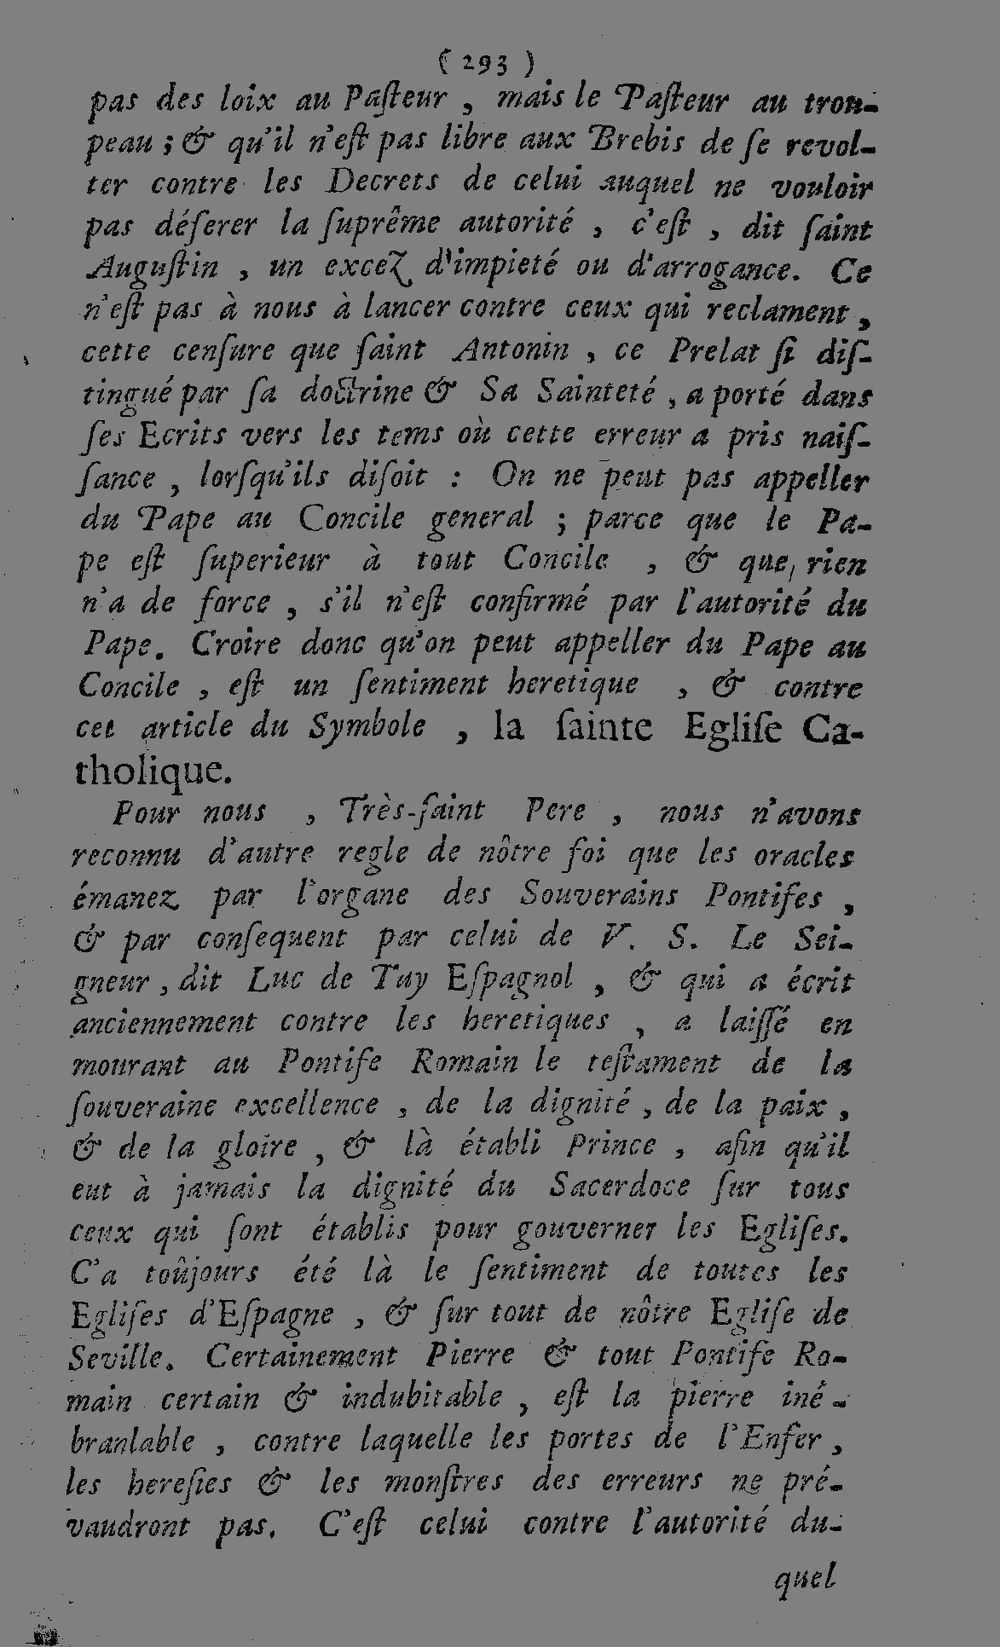 ( 293 )
pas des loix au Paſteur , mais le Paſteur au trou-
peau ; & qu'il n'eſt pas libre aux Brebis de ſe revol-
ter contre les Decrets de celui auquel ne vouloir
pas déferer la ſuprême autorité , c'eſt , dit ſaint
Auguſtin , un excez d'impieté ou d'arrogance. Ce
n'eſt pas à nous à lancer contre ceux qui reclament ,
cette cenſure que ſaint Antonin , ce Prelat ſi diſ-
tingué par ſa doctrine & Sa Sainteté , a porté dans
ſes Ecrits vers les tems où cette erreur a pris naiſ-
ſance , lorſqu'ils diſoit : On ne peut pas appeller
du Pape au Concile general ; parce que le Pa-
pe eſt ſuperieur à tout Concile , & que, rien
n'a de force , s'il n'eſt confirmé par l'autorité du
Pape. Croire donc qu'on peut appeller du Pape au
Concile , eſt un ſentiment heretique , & contre
cet article du Symbole , la ſainte Egliſe Ca-
tholique.
Pour nous , Très-ſaint Pere , nous n'avons
reconnu d'autre regle de nôtre foi que les oracles
émanez par l'organe des Souverains Pontifes ,
& par conſequent par celui de V. S. Le Sei-
gneur , dit Luc de Tuy Eſpagnol , & qui a écrit
anciennement contre les heretiques , a laiſſé en
mourant au Pontife Romain le teſtament de la
ſouveraine excellence , de la dignité , de la paix ,
& de la gloire , & là établi Prince , afin qu'il
eut à jamais la dignité du Sacerdoce ſur tous
ceux qui ſont établis pour gouverner les Egliſes.
C'a toûjours été là le ſentiment de toutes les
Egliſes d'Eſpagne , & ſur tout de nôtre Egliſe de
Seville. Certainement Pierre & tout Pontife Ro-
main certain & indubitable , eſt la pierre iné-
branlable , contre laquelle les portes de l'Enfer ,
les hereſies & les monſtres des erreurs ne pré-
vaudront pas. C'eſt celui contre l'autorité du-
quel